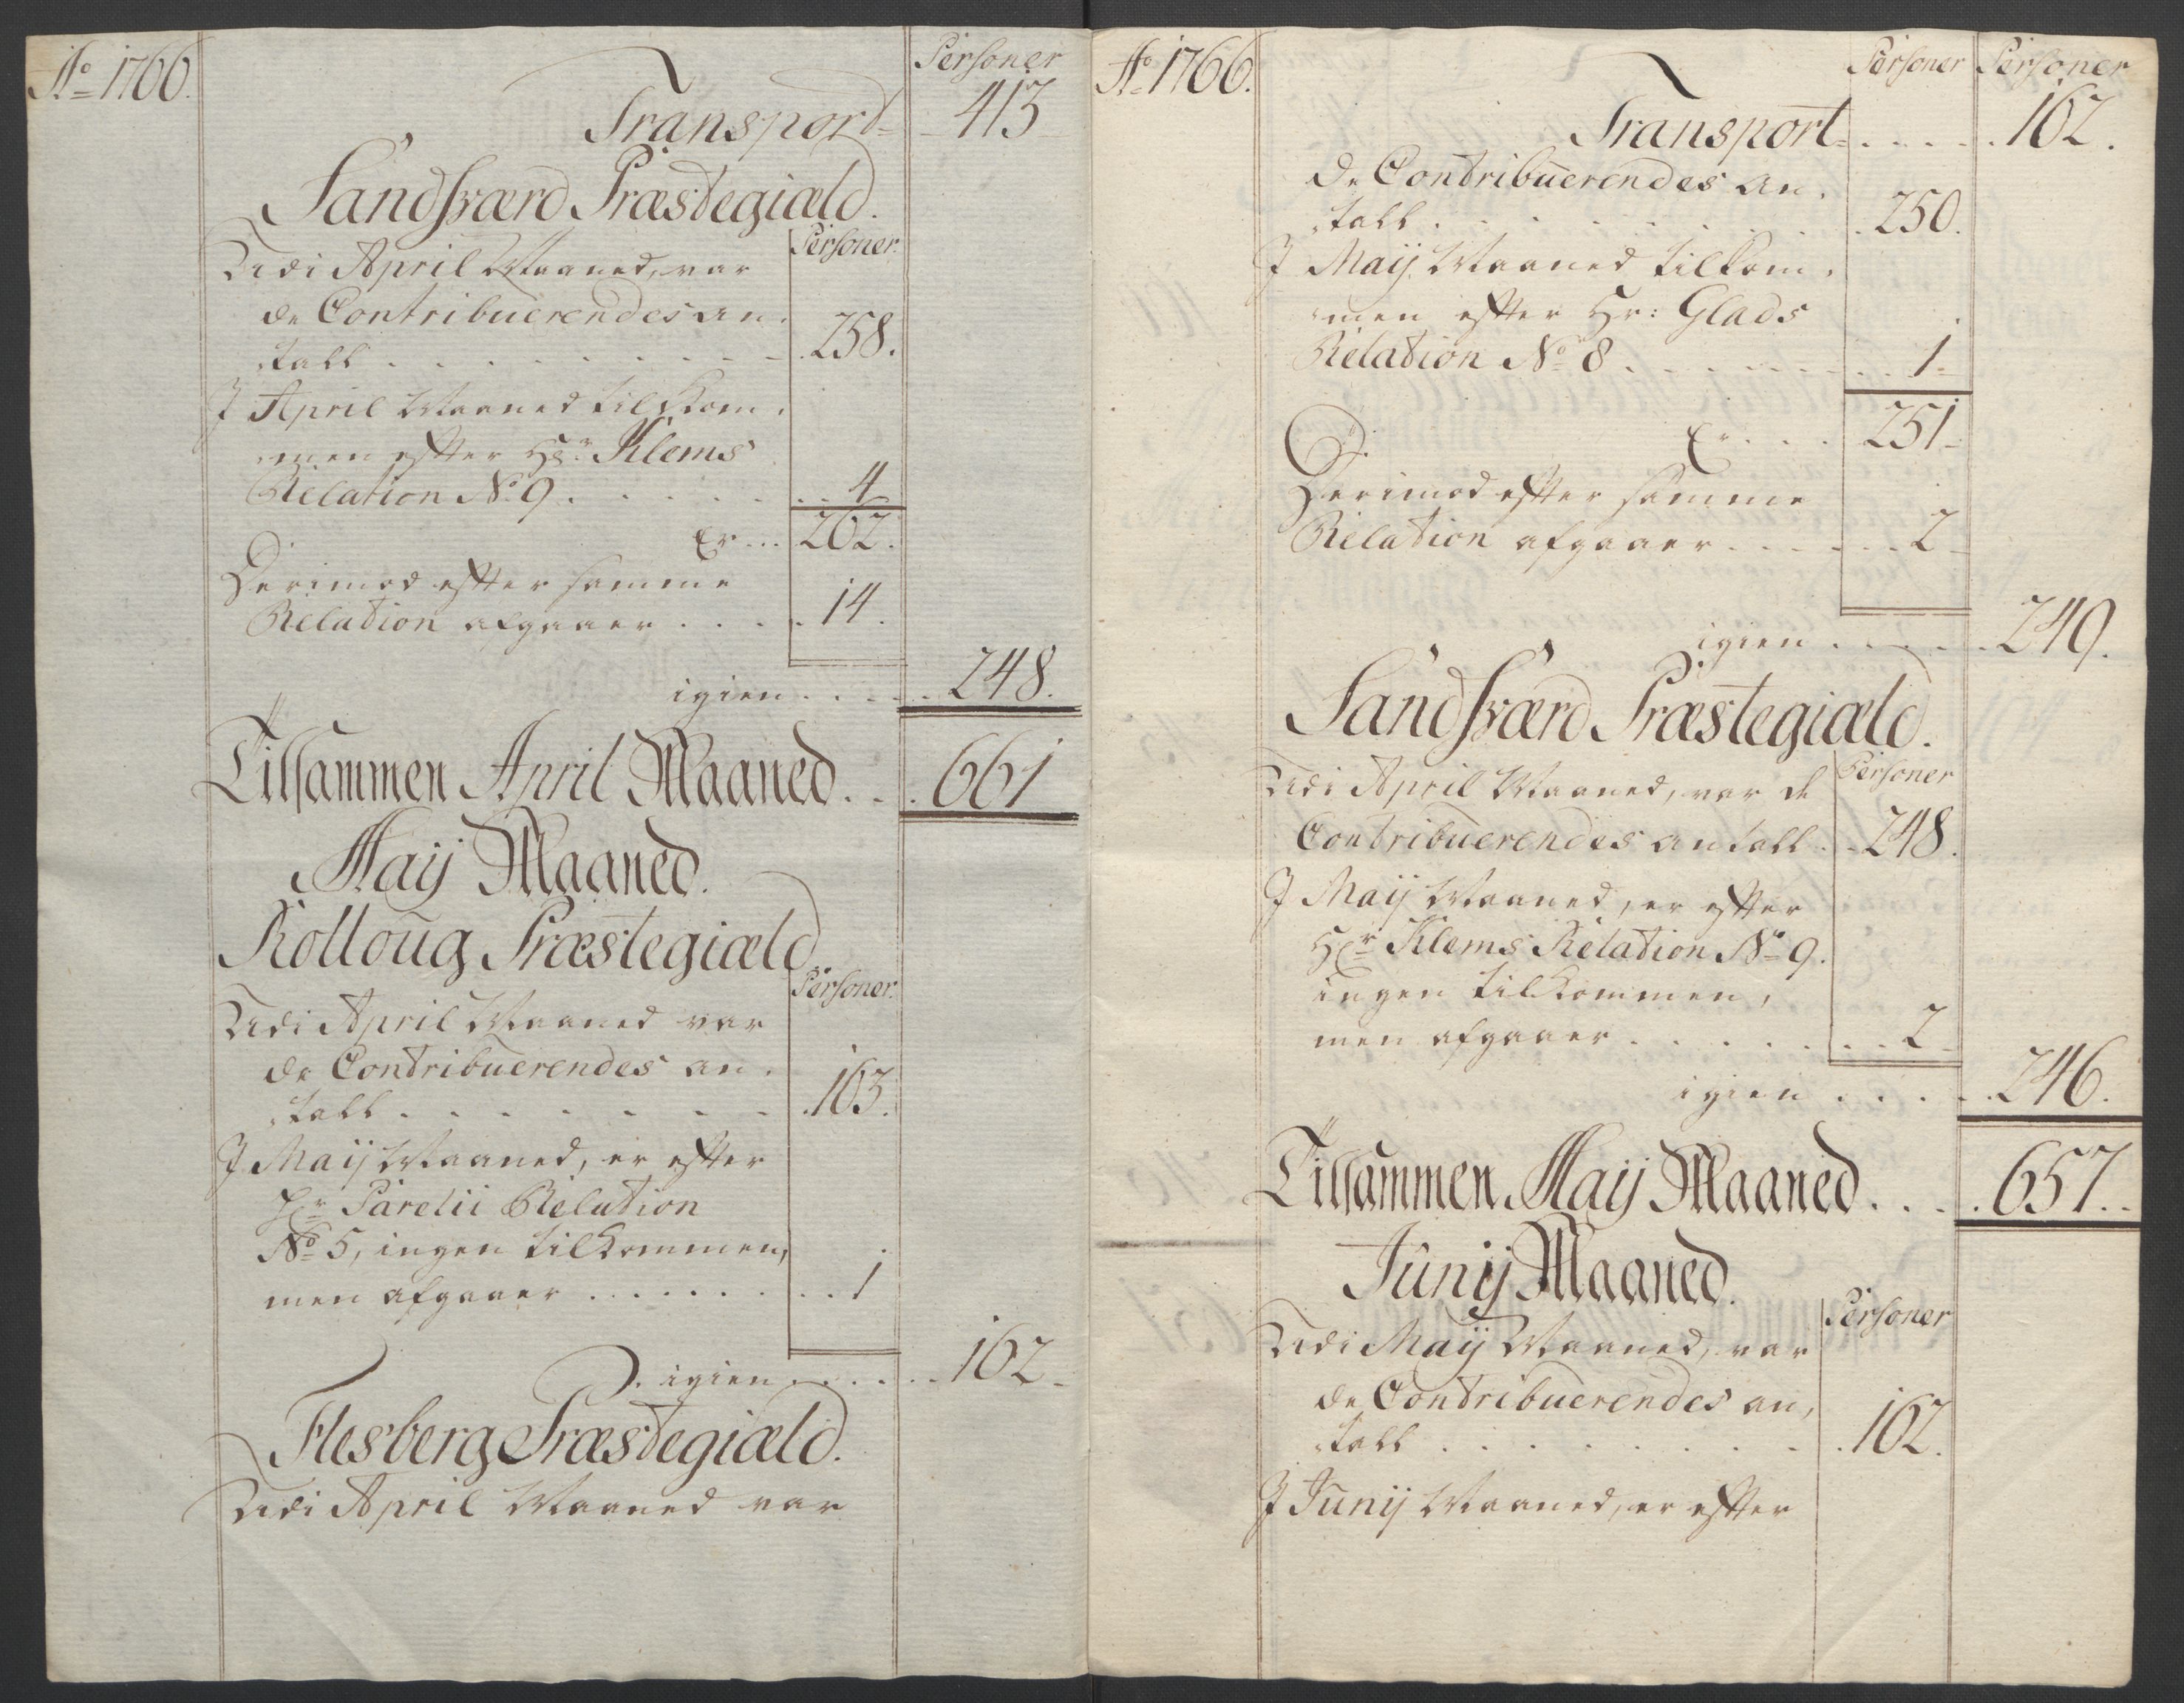 Ao 1766.
Personer
Transport 413
Sandsværd Præstegiæld.
Personer.
Udi April Maaned, var
de Contribuerendes an-
tall . . . . . . . . . 258.
I April Maaned tilkom-
men efter Hr: Klems
Relation No 9. . . . . . . 4
Er... 262.
Derimod efter samme
Relation afgaaer . . . . 14.
igien . . . . . 248.
Tilsammen April Maaned . . . 661
Maij Maaned.
Rolloug Præstegiæld.
Personer.
Udi April Maaned var
de Contribuerendes an-
tall . . . . . . . . 163.
I Maij Maaned, er efter
Hr Parelii Relation
No 5, ingen tilkommen,
men afgaaer . . . . . . . . 1
igien . . . . . . 162
Flesberg Præstegiæld.
Udi April Maaned var
Ao 1766.
Personer Personer
Transport . . . . . 162.
de Contribuerendes an-
tall . . . . . . . . 250.
I Maij Maaned tilkom-
men efter Hr: Glads
Relation No 8 . . . . . . . . 1
Er . . . . 251
Derimod efter samme
Relation afgaaer . . . . . . 2
igien . . . . . 249.
Sandsværd Præstegiæld.
Personer
Udi April Maaned, var de
Contribuerendes antall . . 248.
I Maij Maaned, er efter
Hr Klems Relation No 9.
ingen tilkommen,
men afgaaer . . . . . . . 2
igien . . . . . 246.
Tilsammen Maij Maaned . . . . 657. .
Junij Maaned.
Personer
Udi Maij Maaned, var
de Contribuerendes an-
tall . . . . . . . . . 162.
I Junij Maaned, er efter